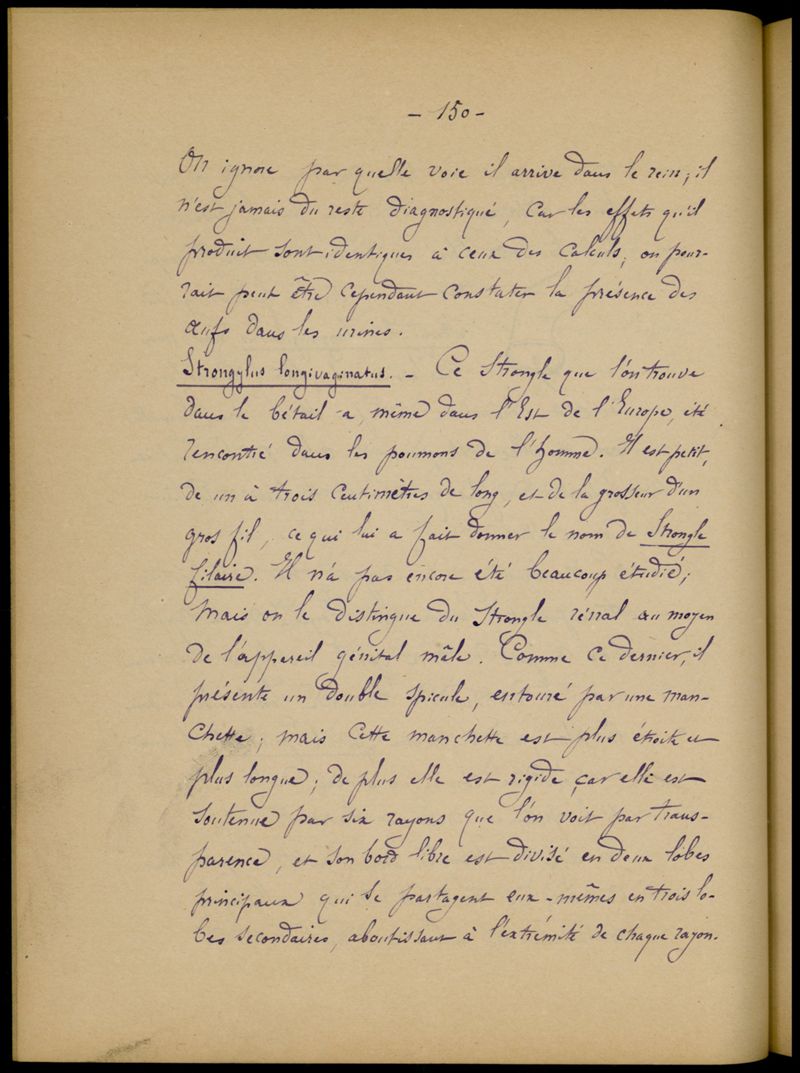 - 150 -
On ignore par quelle voie il arrive dans le rein; il
n'est jamais du reste diagnostiqué, car les effets qu'il
produit sont identiques à ceux des calculs; on pour-
rait peut être cependant constater la présence des
œufs dans les urines.
Strongylus longivaginatus. - Ce Strongle que l'on trouve
dans le bétail a, même dans l'Est de l'Europe, été
rencontré dans les poumons de l'homme. Il est petit,
de un à trois centimètres de long, et de la grosseur d'un
gros fil, ce qui lui a fait donner le nom de Strongle
filaire. Il n'a pas encore été beaucoup étudié;
mais on le distingue du Strongle rénal au moyen
de l'appareil génital mâle. Comme ce dernier, il
présente un double spicule, entouré par une man-
chette; mais cette manchette est plus étroite et
plus longue; de plus elle est rigide, car elle est
soutenue par six rayons que l'on voit par trans-
parence, et son bord libre est divisé en deux lobes
principaux qui se partagent eux-mêmes en trois lo-
bes secondaires, aboutissant à l'extrémité de chaque rayon.